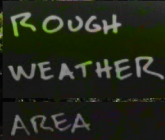 ROUGH
WEATHER
AREA